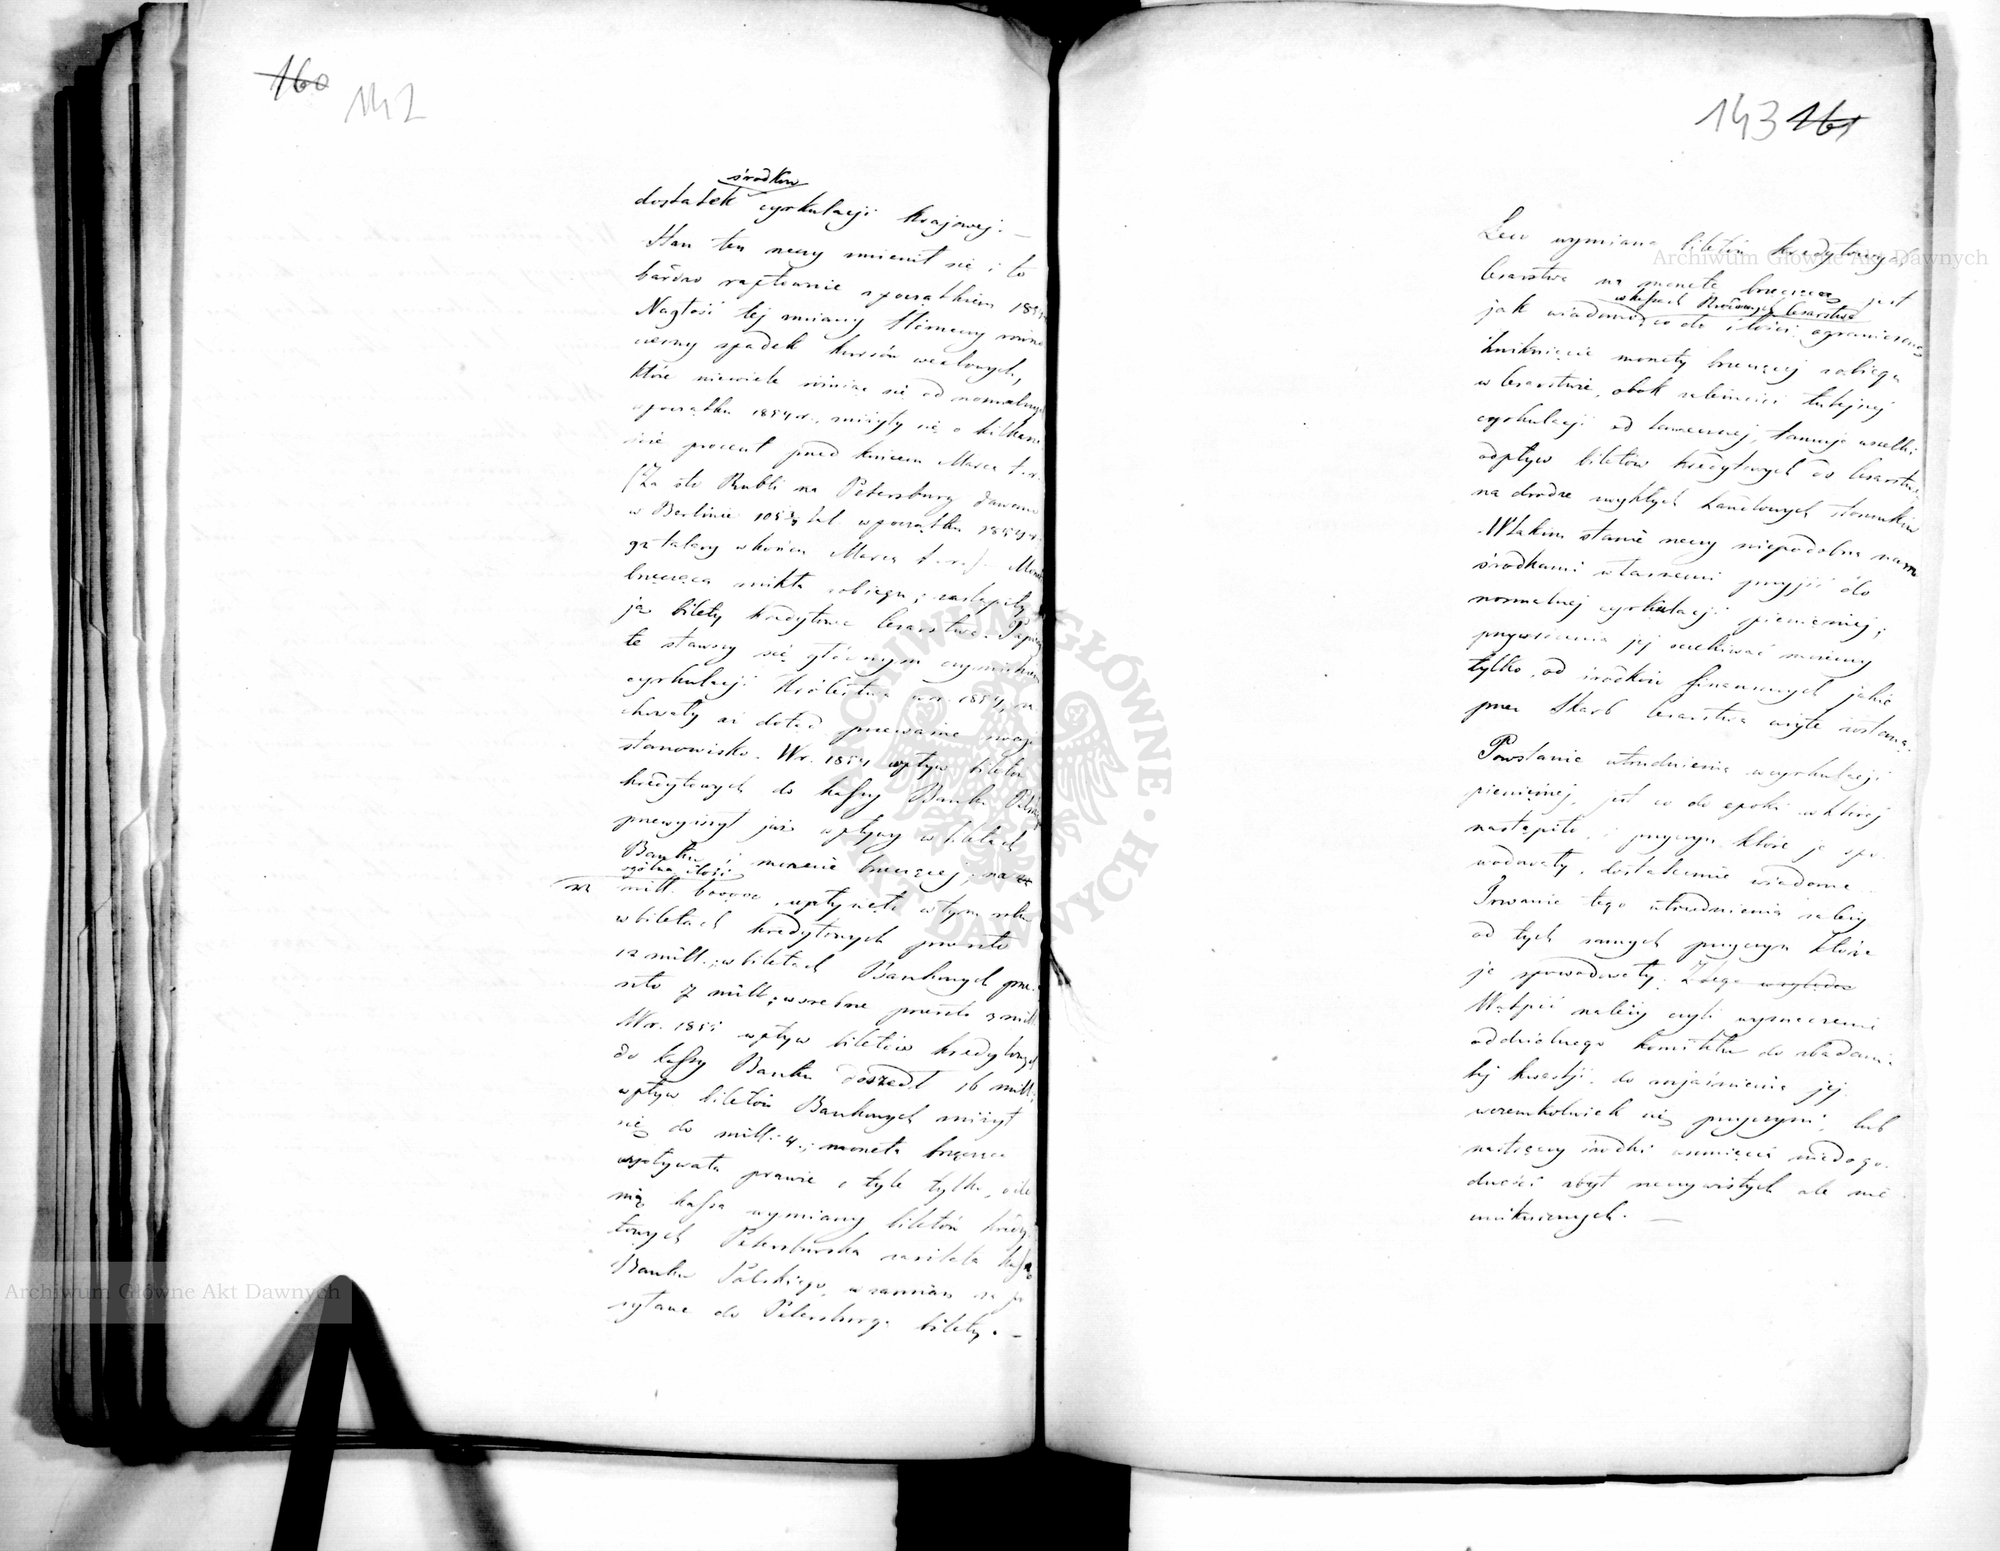 160 142
środków
dostatek cyrkulacji krajowej. —
Stan ten rzeczy zmienił się i to
bardzo raptownie z początkiem 1854
Nagłość tej zmiany tłómaczy równo
czesny spadek kursów wexlowych,
które niewiele różniąc się od normalnych
z początku 1854 r., zniżyły się o kilkana
ście procent przed końcem Marca t. r.
(Za sto Rubli na Petersburg dawano
w Berlinie 105 3/4 tal. w początku 1854 r.
92 talary w końcu Marca t. r.) Moneta
brzęcząca znikła z obiegu; zastąpiły
ją bilety kredytowe Cesarstwa. Papiery
te stawszy się głównym czynnikiem
cyrkulacji Królestwa w r. 1854, za
chowały aż dotąd przeważnie swoje
stanowisko. W r. 1854 wpływ biletów
kredytowych do kassy Banku Polskiego
przewyższył już wpływy w biletach
Banku i monecie brzęczącej; na
ogólną ilość
mill. wpłynęło w tym roku
w biletach kredytowych przeszło
12 mill.; w biletach Bankowych prze
szło 7 mill.; w srebrze przeszło 3 mill.
W r. 1855 wpływ biletów kredytowych
do kassy Banku doszedł 16 mill.;
wpływ biletów Bankowych zniżył
się do mill. 4.; moneta brzęcząca
wpływała prawie o tyle tylko, o ile
nią kassa wymiany biletów kredy
towych Petersburska zasilała kassę
Banku Polskiego, w zamian za prze
syłane do Petersburga bilety. —
143 161
Lecz wymiana biletów kredytowych
Cesarstwa na monetę brzęczącą jest
w kassach Cesarstwa
jak wiadomo co do ilości ograniczoną
Zniknięcie monety brzęczącej z obiegu
w Cesarstwie, obok zależności tutejszej
cyrkulacji od tamecznej, tamuje wszelki
odpływ biletów kredytowych do Cesarstwa
na drodze zwykłych handlowych stosunków
W takim stanie rzeczy niepodobna nam
środkami własnemi przyjść do
normalnej cyrkulacji pieniężnej;
przywrócenia jej oczekiwać możemy
tylko, od środków finansowych jakie
przez Skarb Cesarstwa użyte zostaną.
Powstanie utrudnienia w cyrkulacji
pieniężnej, jest co do epoki w której
nastąpiło, i przyczyn które je spo
wodowały, dostatecznie wiadome.
Trwanie tego utrudnienia zależy
od tych samych przyczyn które
je spowodowały. Z tego względu
Wątpić należy czyli wyznaczenie
oddzielnego komitetu do zbadania
tej kwestji, do wyjaśnienia jej
w czemkolwiek się przyczyni, lub
nastręczy środki usunięcia niedogo
dności zbyt rzeczywistych ale nie
uniknionych. —
Archiwum Główne Akt Dawnych
Archiwum Główne Akt Dawnych
ARCHIWUM GŁÓWNE AKT DAWNYCH